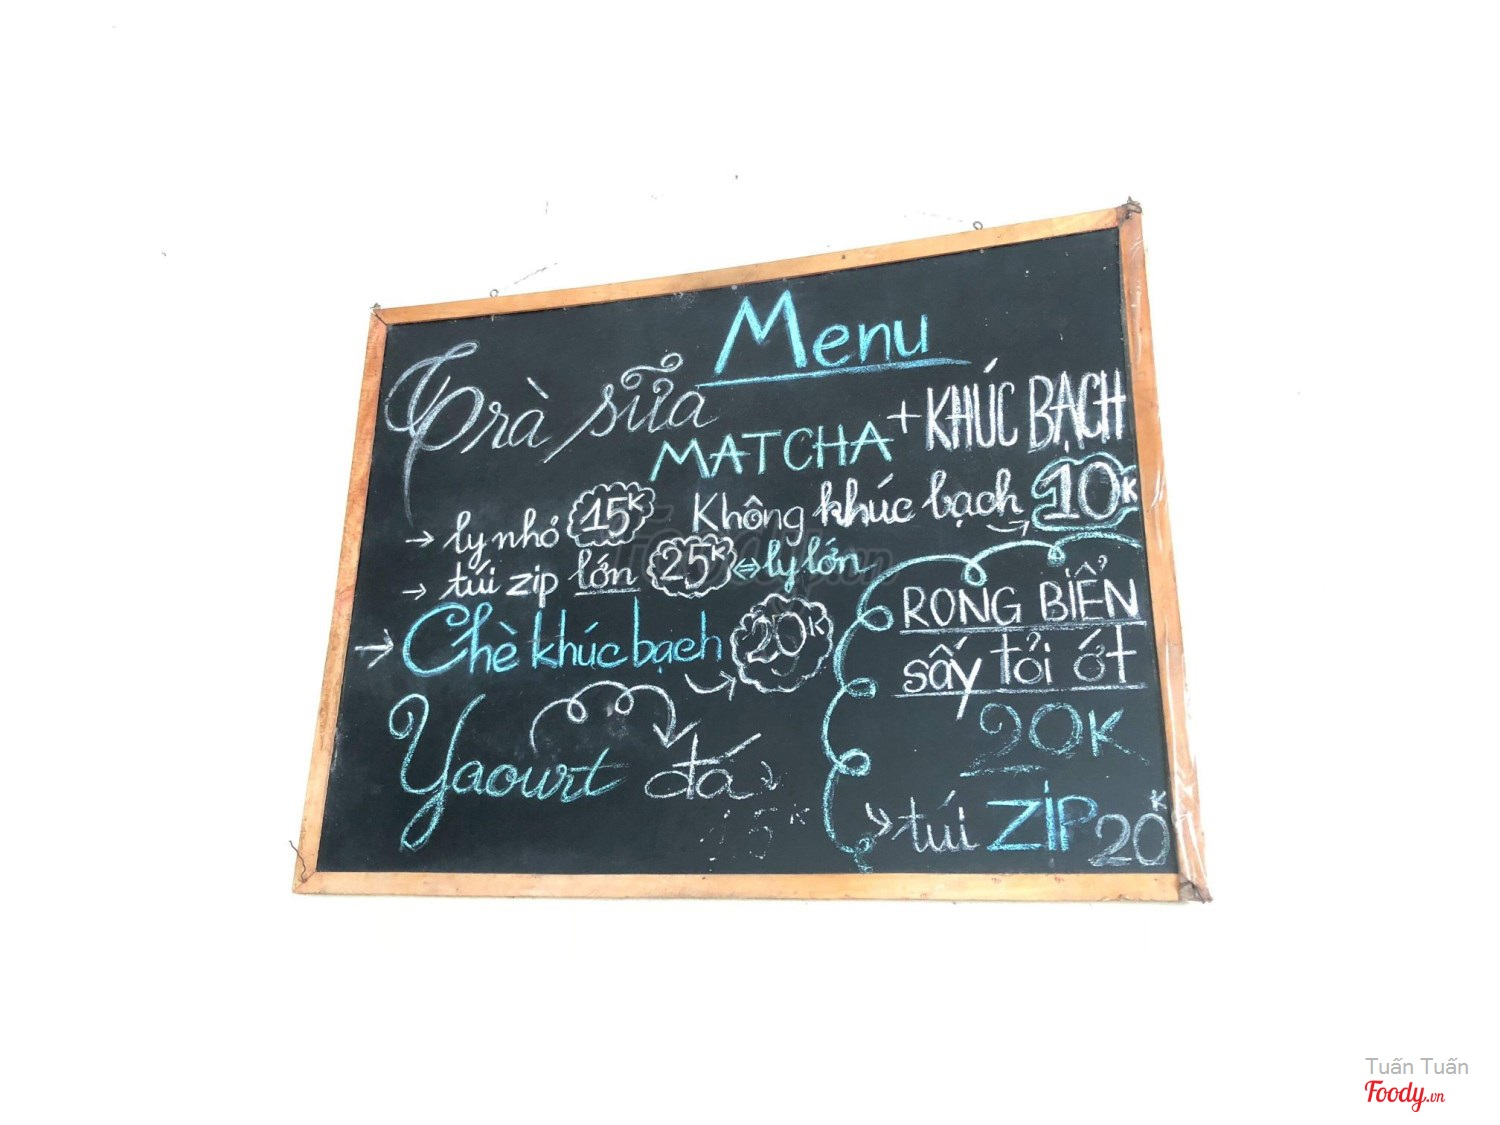 Menu
Trà sữa
MATCHA + KHÚC BẠCH
→ ly nhỏ 15K Không khúc bạch → 10K
→ túi zip lớn 25K ⇔ ly lớn
→ Chè khúc bạch → 20K
Yaourt đá
RONG BIỂN
sấy tỏi ớt
20K
→ túi ZIP 20K
Tuấn Tuấn
Foody.vn